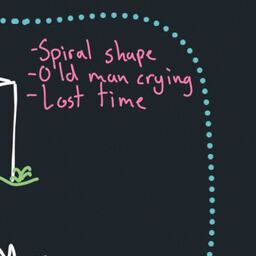 -Spiral shape
-Old man crying
-Lost time